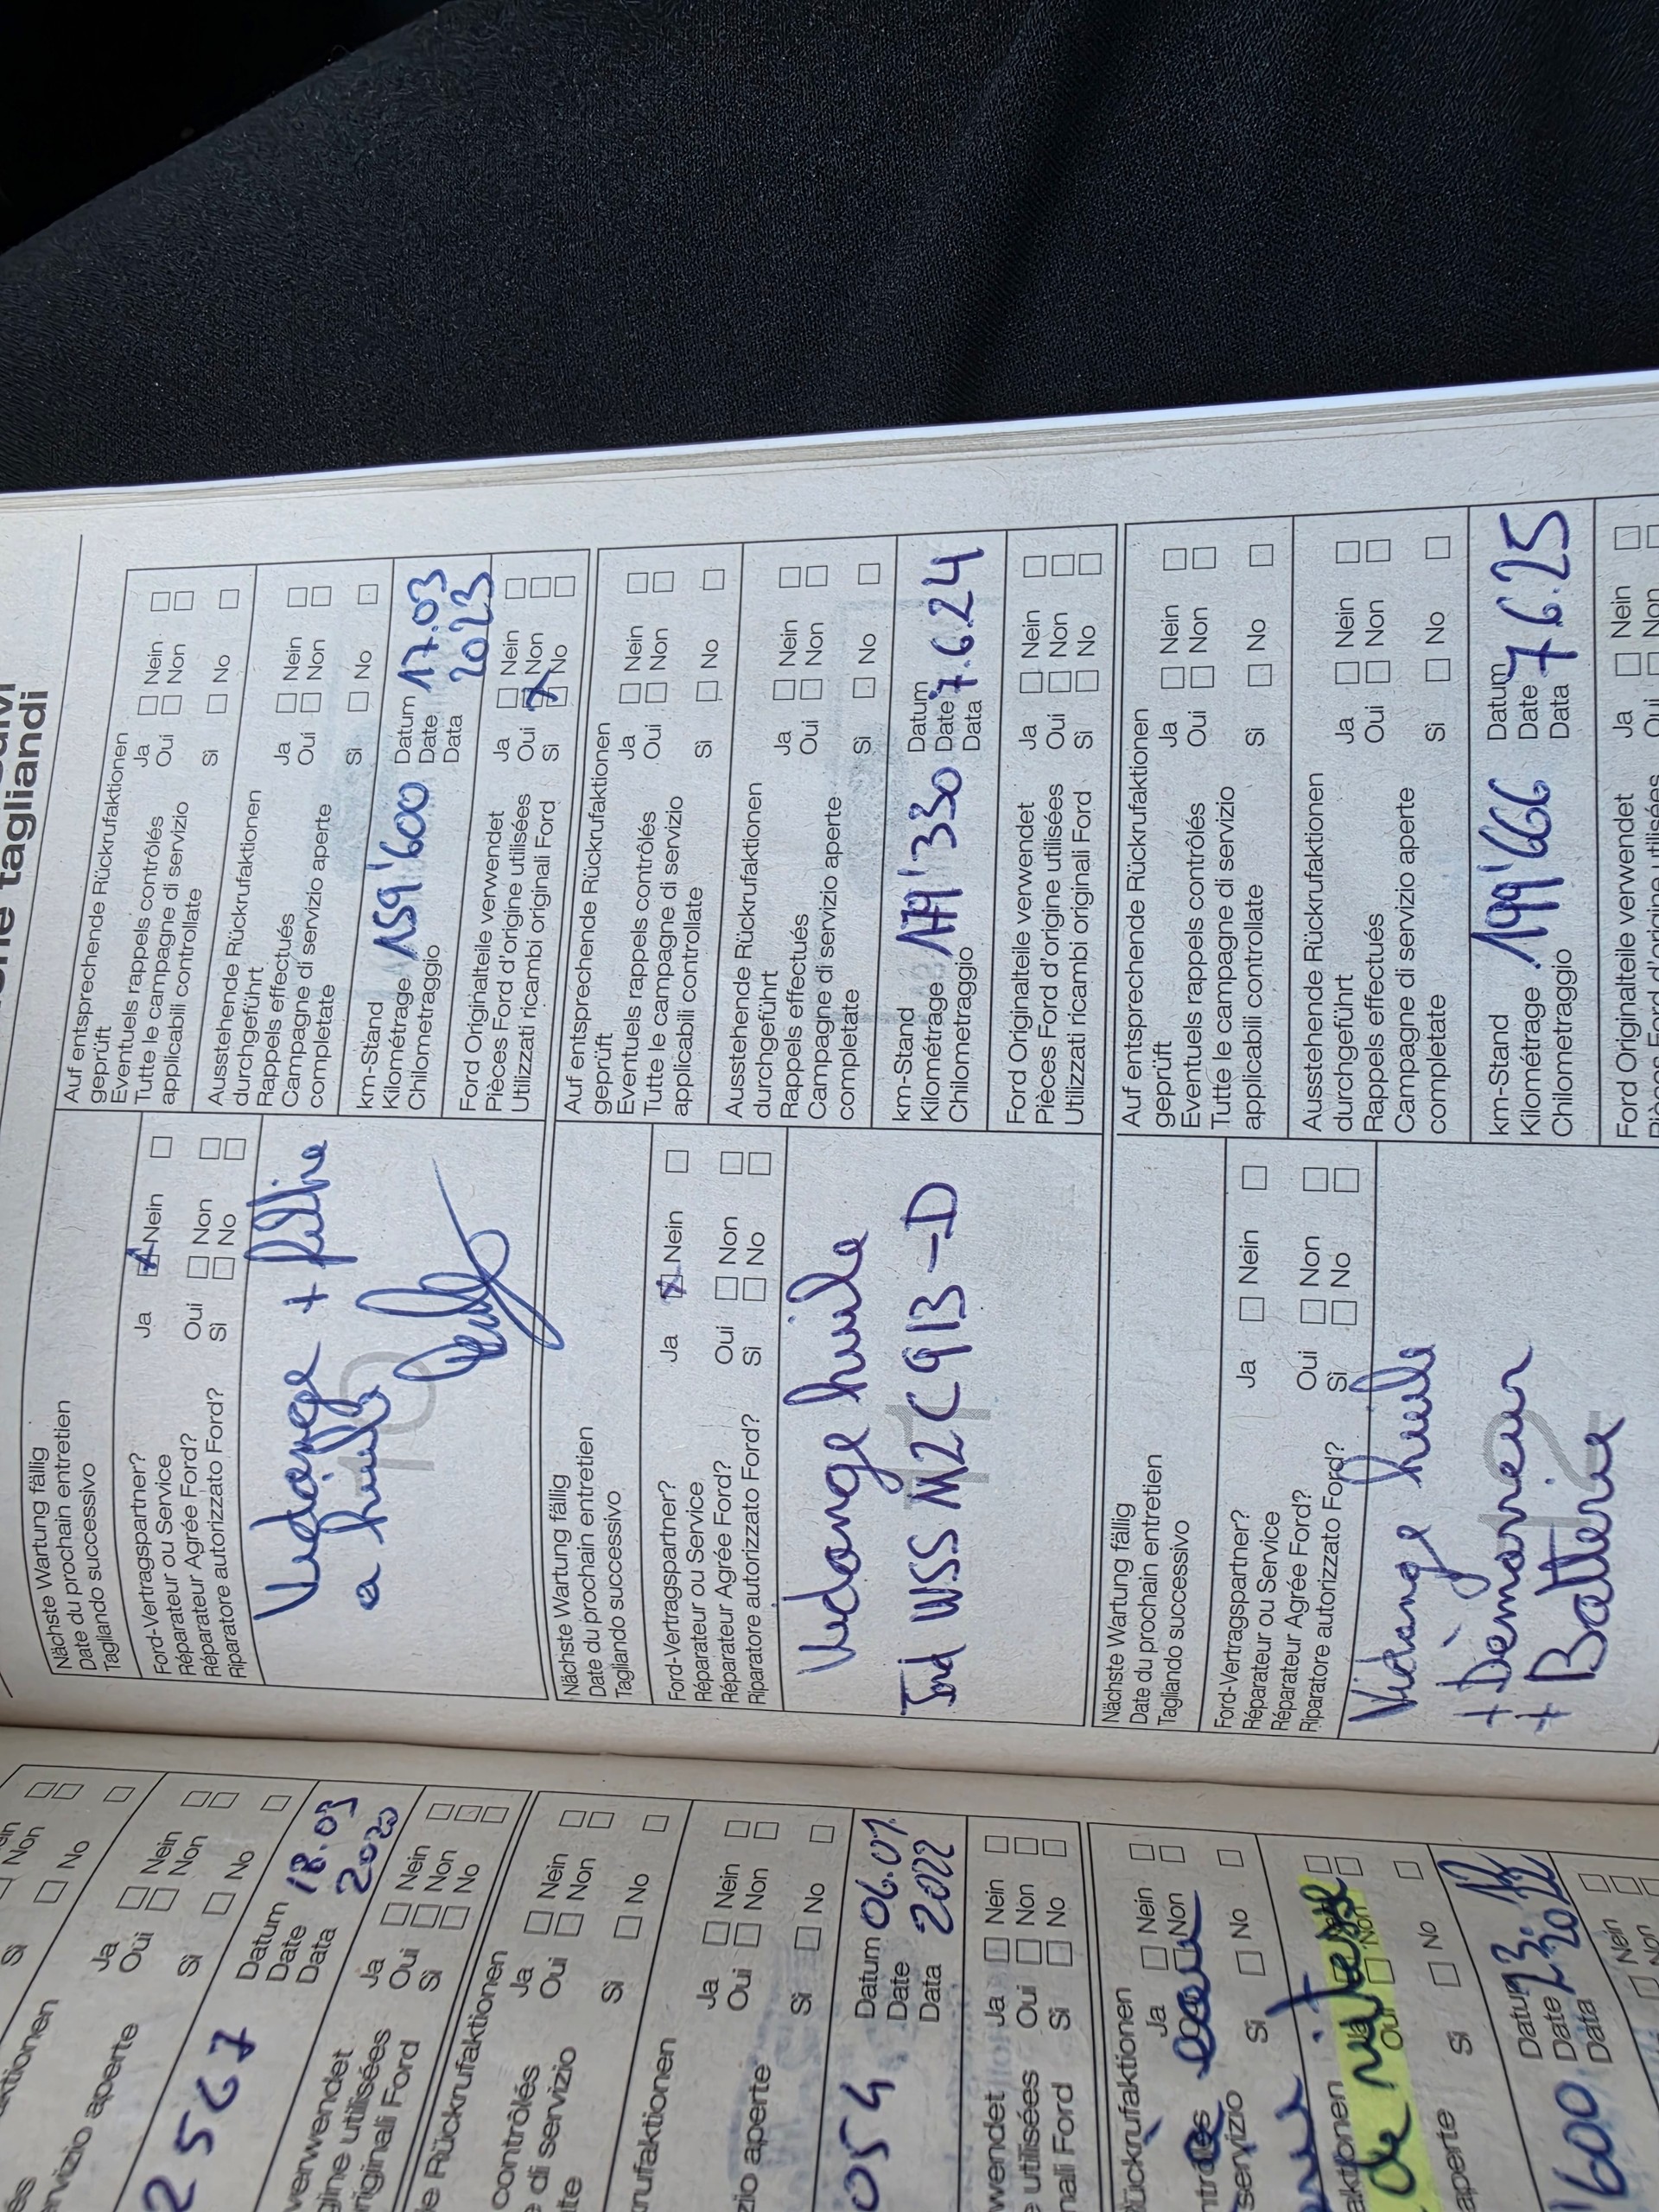 tagliandi
Nächste Wartung fällig
Date du prochain entretien
Tagliando successivo
Ford-Vertragspartner? Ja Nein
Réparateur ou Service
Réparateur Agrée Ford? Oui Non
Riparatore autorizzato Ford? Si No
Vidange + filtre
a huile
10
Auf entsprechende Rückrufaktionen
geprüft
Eventuels rappels contrôlés
Tutte le campagne di servizio
applicabili controllate
Ja Nein
Oui Non
Si No
Ausstehende Rückrufaktionen
durchgeführt
Rappels effectués
Campagne di servizio aperte
completate
Ja Nein
Oui Non
Si No
km-Stand
Kilométrage 159'600
Chilometraggio
Datum 17.03
Date 2023
Data
Ford Originalteile verwendet Ja Nein
Pièces Ford d'origine utilisées Oui Non
Utilizzati ricambi originali Ford Si No
Nächste Wartung fällig
Date du prochain entretien
Tagliando successivo
Ford-Vertragspartner? Ja Nein
Réparateur ou Service
Réparateur Agrée Ford? Oui Non
Riparatore autorizzato Ford? Si No
Vidange huile
Ford WSS M2C913-D
11
Auf entsprechende Rückrufaktionen
geprüft
Eventuels rappels contrôlés
Tutte le campagne di servizio
applicabili controllate
Ja Nein
Oui Non
Si No
Ausstehende Rückrufaktionen
durchgeführt
Rappels effectués
Campagne di servizio aperte
completate
Ja Nein
Oui Non
Si No
km-Stand
Kilométrage 179'330
Chilometraggio
Datum
Date 7.6.24
Data
Ford Originalteile verwendet Ja Nein
Pièces Ford d'origine utilisées Oui Non
Utilizzati ricambi originali Ford Si No
Nächste Wartung fällig
Date du prochain entretien
Tagliando successivo
Ford-Vertragspartner? Ja Nein
Réparateur ou Service
Réparateur Agrée Ford? Oui Non
Riparatore autorizzato Ford? Si No
Vidange huile
+ Démarreur
+ Batterie
12
Auf entsprechende Rückrufaktionen
geprüft
Eventuels rappels contrôlés
Tutte le campagne di servizio
applicabili controllate
Ja Nein
Oui Non
Si No
Ausstehende Rückrufaktionen
durchgeführt
Rappels effectués
Campagne di servizio aperte
completate
Ja Nein
Oui Non
Si No
km-Stand
Kilométrage 199'666
Chilometraggio
Datum
Date 7 6.25
Data
Ford Originalteile verwendet Ja Nein
Oui Non
Non
Si No
servizio aperte
Ja Nein
Oui Non
Si No
2567
Datum 18.03
Date 2020
Data
verwendet Ja Nein
utilisées Oui Non
originali Ford Si No
Rückrufaktionen
contrôlés
di servizio
Ja Nein
Oui Non
Si No
aperte
Ja Nein
Oui Non
Si No
054
Datum 06.01
Date 2022
Data
Ja Nein
utilisées Oui Non
Ford Si No
Ja Nein
Non
servizio Si No
de vitesse
aperte Si No
600
Datum 23.12
Date 2022
Data
Nein